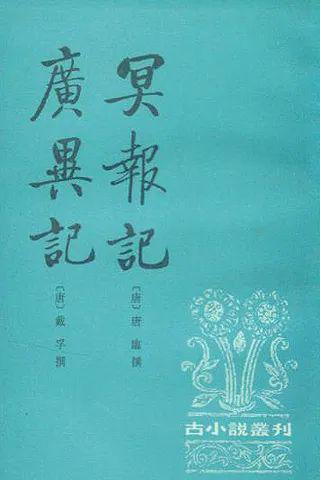 冥報記
〔唐〕唐臨撰
廣異記
〔唐〕戴孚撰
古小說叢刊